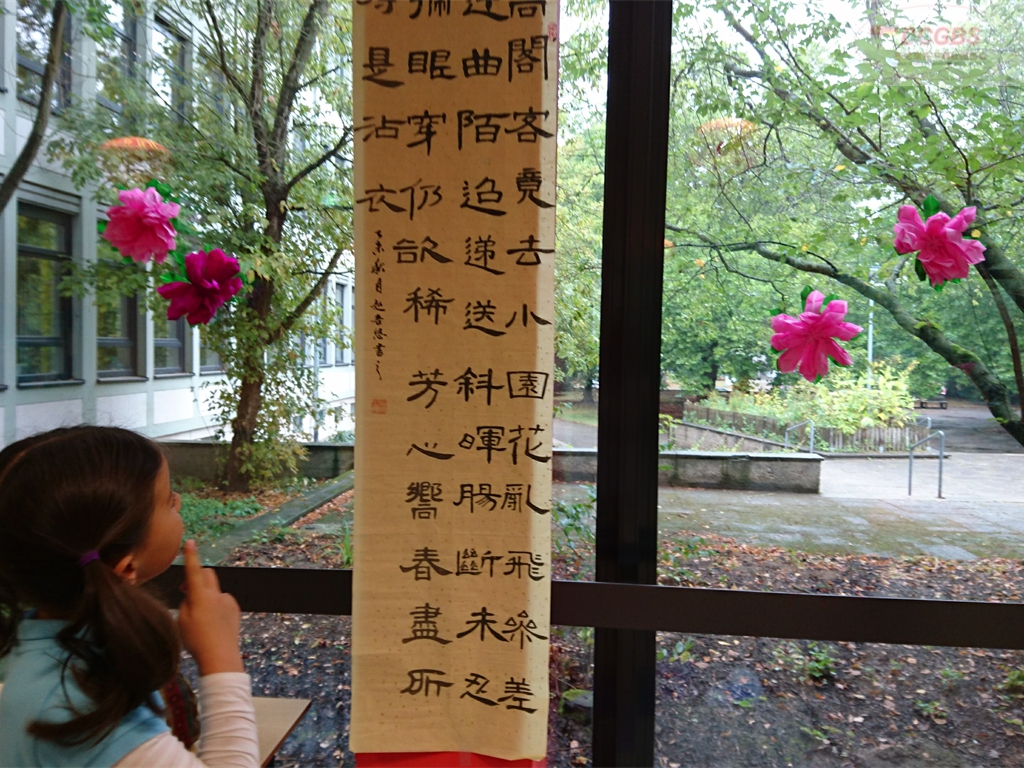 高閣客竟去小園花亂飛參差
連曲陌迢遞送斜暉腸斷未忍
掃眼穿仍欲稀芳心嚮春盡所
得是沾衣
乙未 月 書之